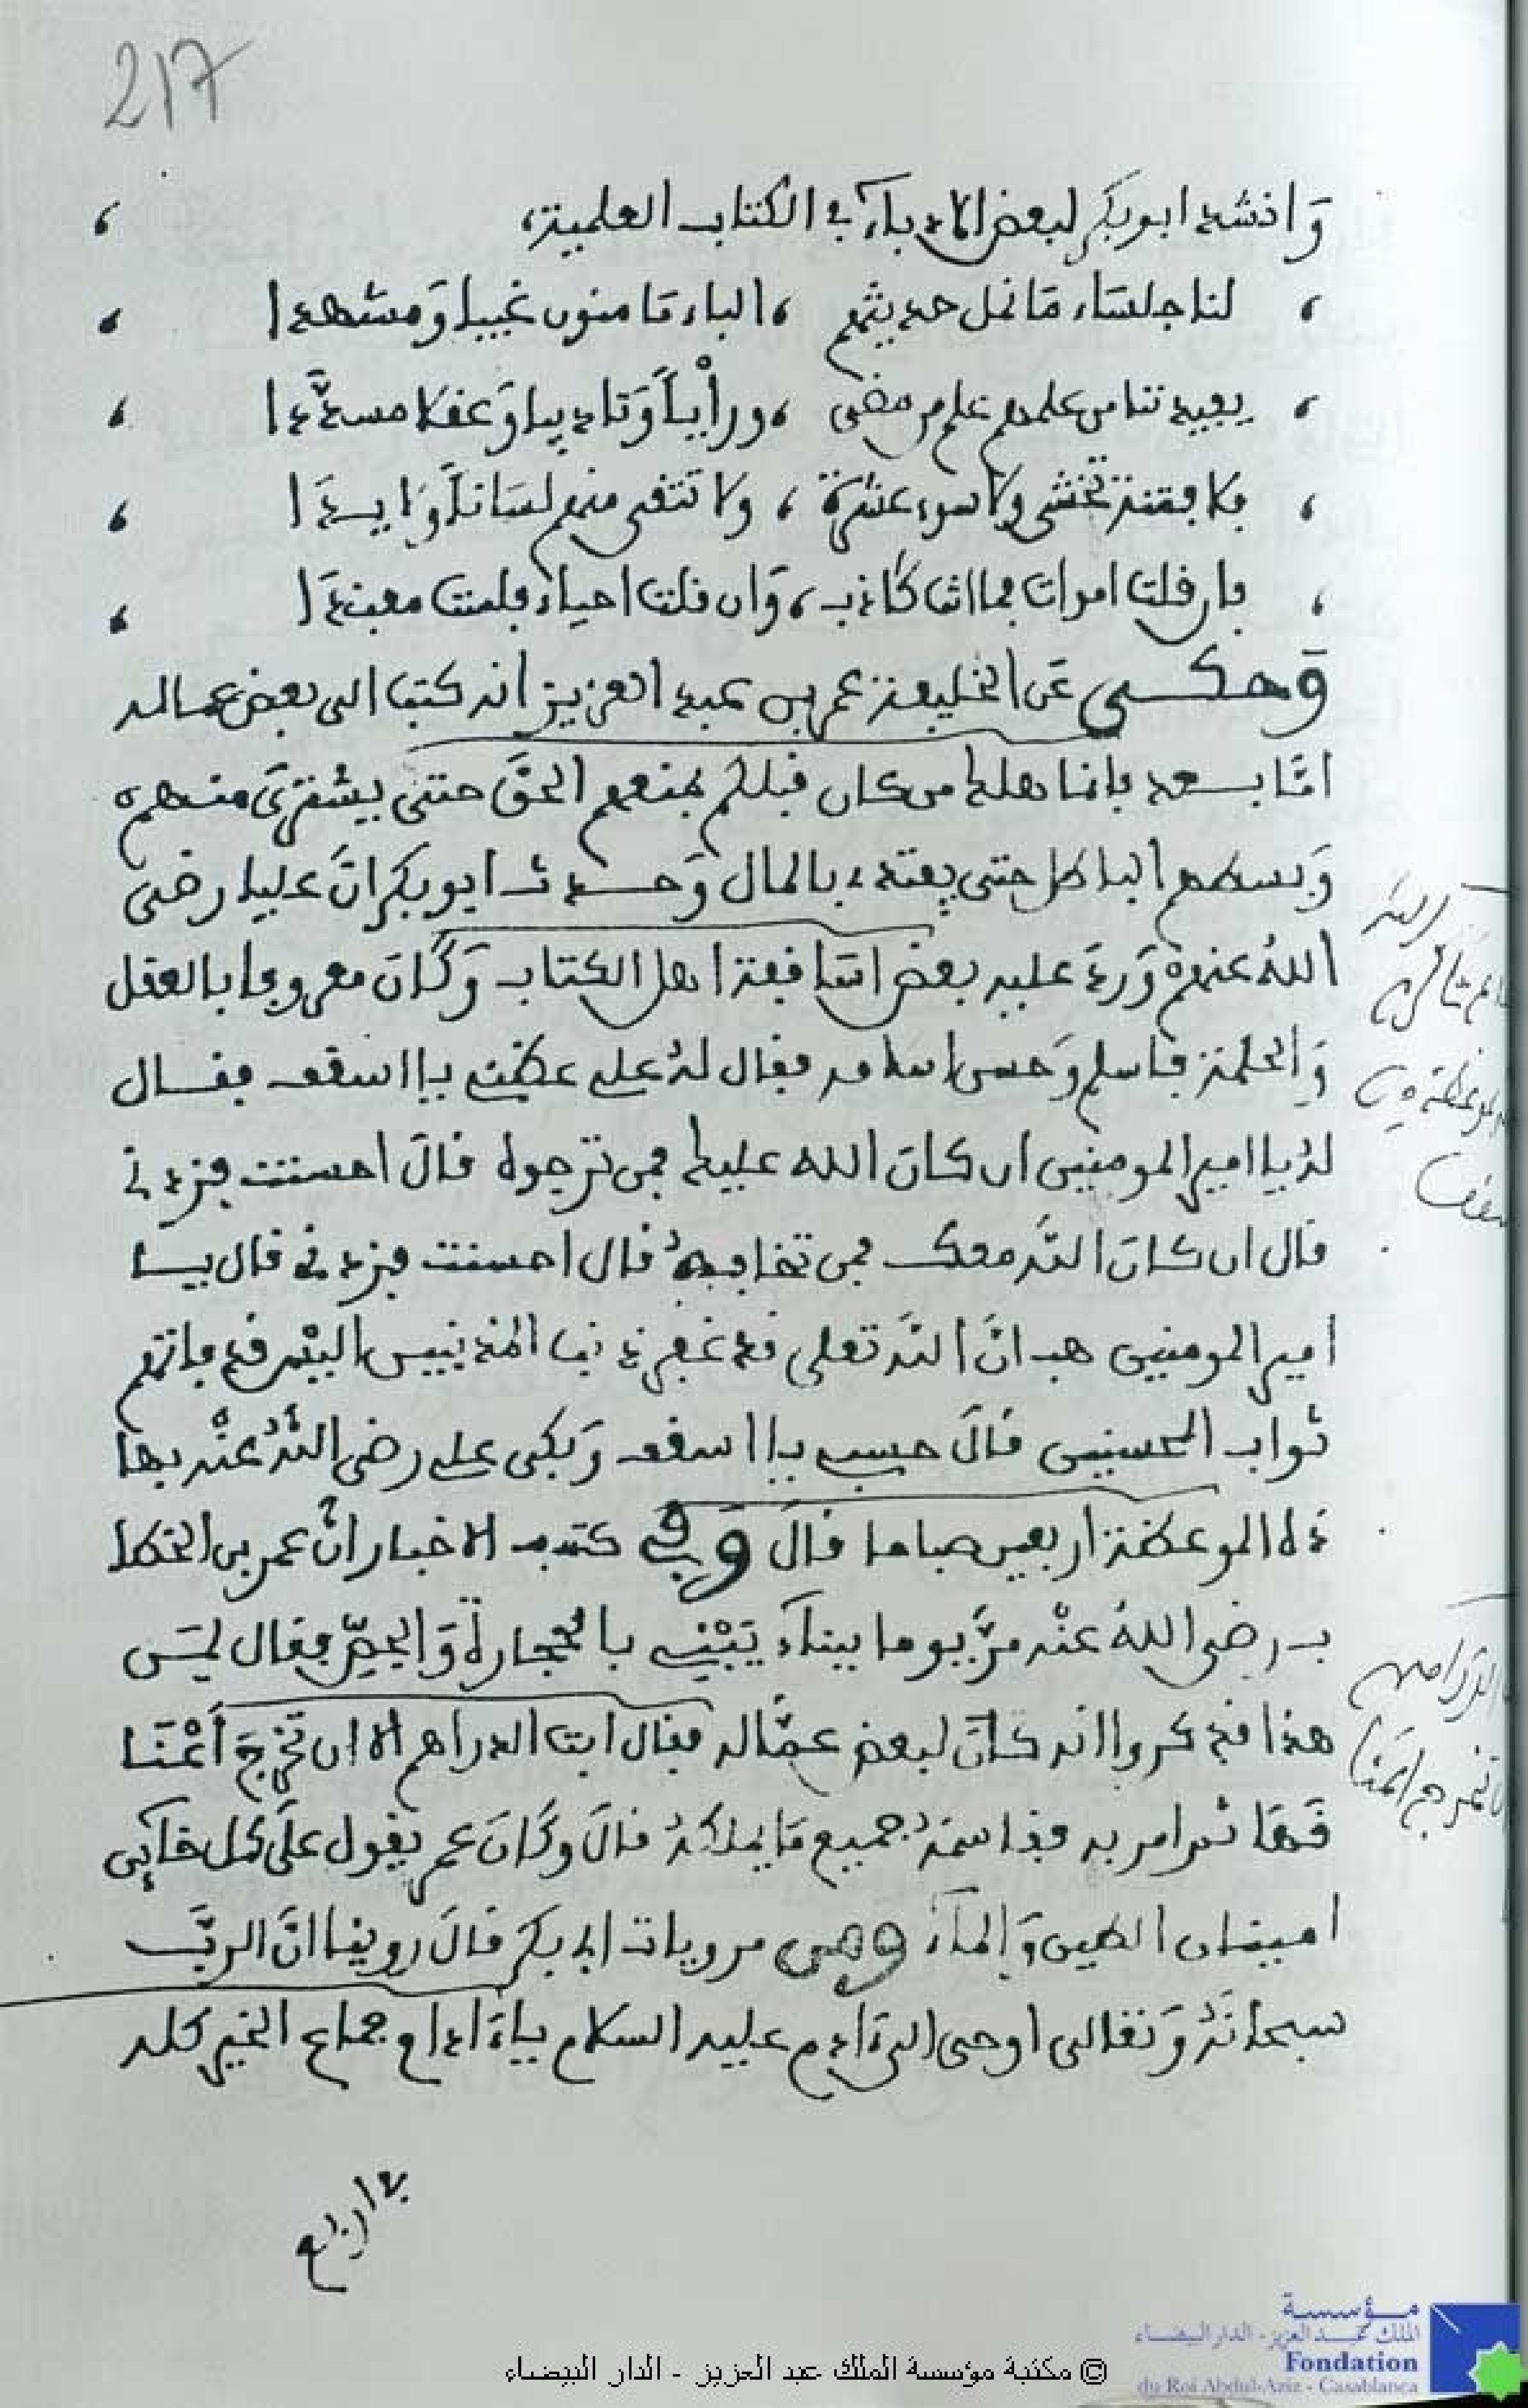 217
وَانشد ابوبكر لبعض الادباء في الكتاب العلمية،
، لنا جلساء مَا نمل حديثهم ، البّاء مَامنون غيبا وَمشهدا ،
، يفيدوننا من علمهم علم من مضى ، ورأْياً وَتاديبا وَعفلا مسدَّدا ،
، بلا فتنة تخشى ولا سوء عشرة ، ولا نتفى منهم لسَاناً وَلا يدَا ،
، فان فلت اموات فما انت كَاذب ، وَان فلت احياء فلست مفندَا ،
وَحكى عَن الخليفة عمر بن عبد العزيز انه كتب الى بعض عماله
امَّا بعد فانما هلك من كان فبلكم بمنعهم الحقَّ حتى يشترَى منهم
وَبسطهم الباطل حتى يفتدى بالمال وَحدث ابوبكر انَّ عليا رضى
اللهُ عنه وَردَ عليه بعض اسَافِفة اهل الكتاب وَكَان معروفا بالعقل
وَالحلم فاسلم وَحسن اسلامه ففال لهُ على عظنى يا اسقف ففال
لهُ يا امير المومنين ان كانَ الله عليك فمن ترجوه فالَ احسنت فزدنى
فال ان كانَ الله معك فمن تخافهُ فال احسنت فزدنى فال يا
امير المومنين هب انَّ اللهَ تعلى فد غفر ذنب المذنبين اليْس فد فاتهم
ثواب المحسنين فالَ حسبى يا اسفف وَبكى على رضى اللهُ عنْه بها
ذه الموعظة اربعين صباحا فالَ وَفى كتب الاخبار انَّ عمر بن الخطا
ب رضى اللهُ عنْه مرَّ يوما ببناءٍ يَبْنى بالحجارة وَالجصّ ففال لمَن
هذا فذكروا انه كانَ لبعض عمَّاله ففال ابت الدراهم الا ان تخرجَ اَعْنَا
فَهَا ثم امر به ففاسمهُ جميع مَا يملكهُ فالَ وكَانَ عمر يفول علَى كل خاين
امينان الطين وَالماء وَمن مرويات ابى بكر فالَ روينا انَّ الربَّ
سبحانَهُ وَتعالى اوحى الى ءادم عليه السلام يا ءادم جماع الخير كله
فى اربع
مؤسسة
الملك عبد العزيز - الدار البيضاء
Fondation
du Roi Abdul-Aziz - Casablanca
© مكتبة مؤسسة الملك عبد العزيز - الدار البيضاء